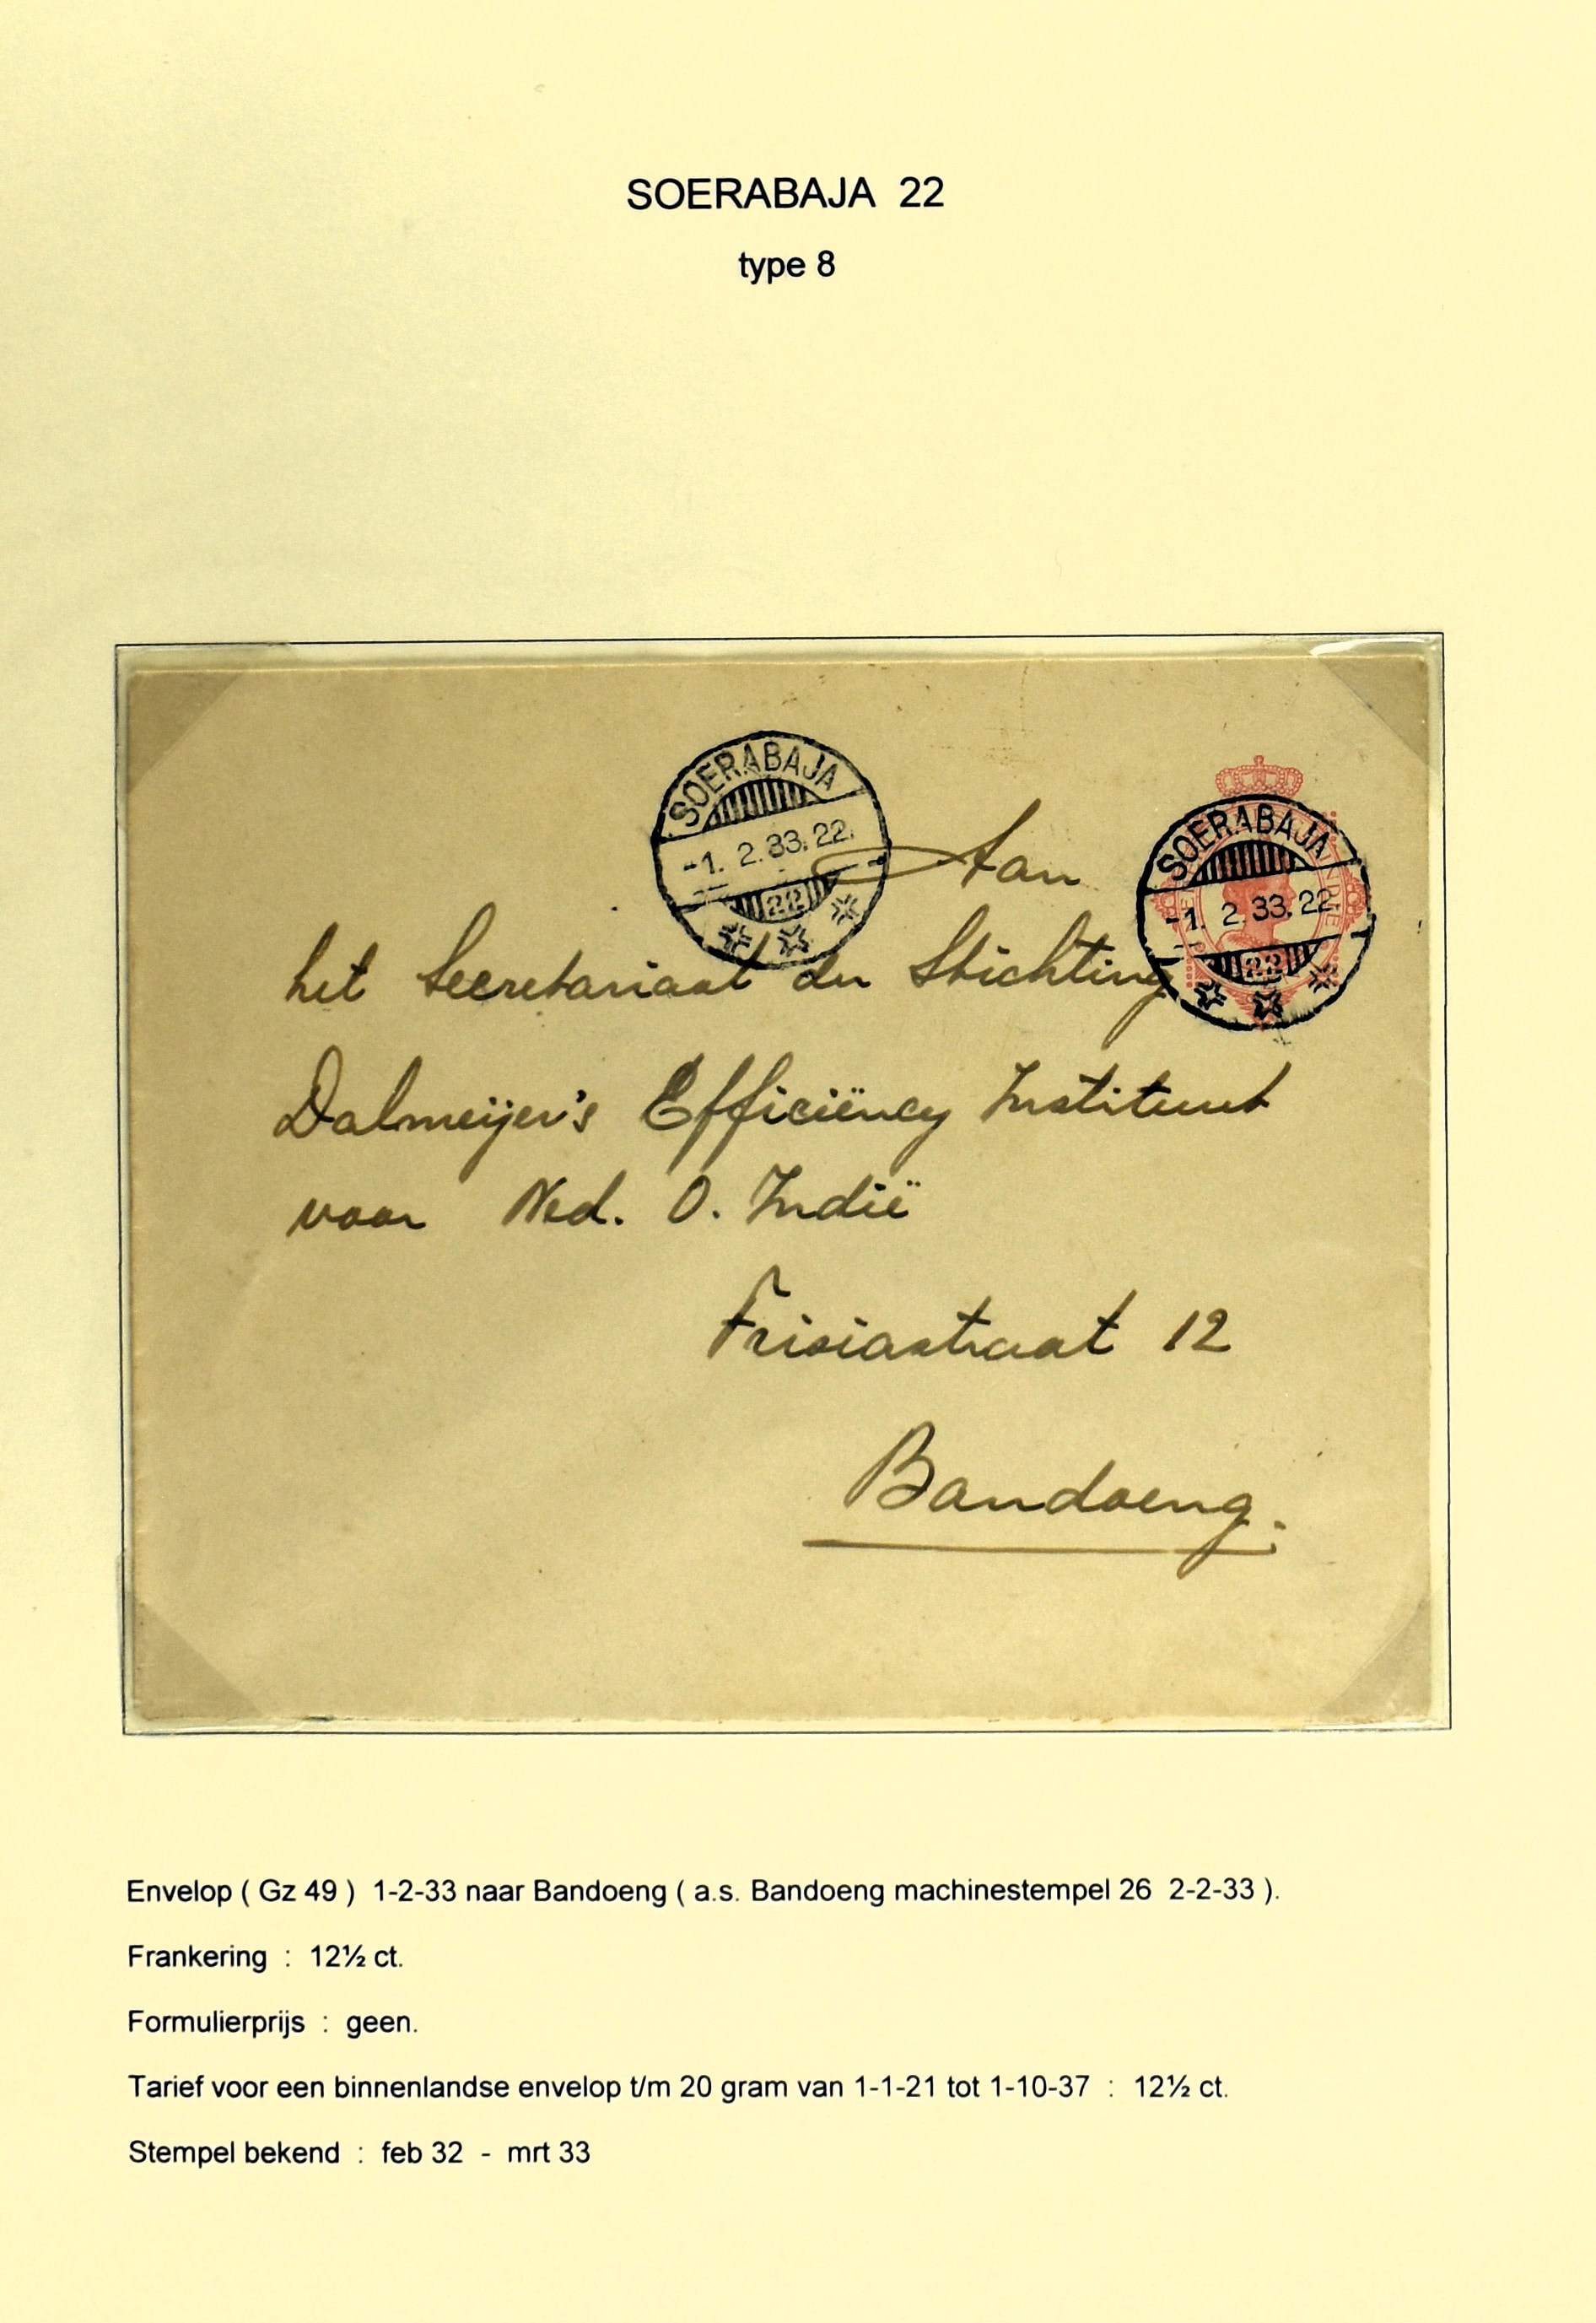 SOERABAJA 22
type 8
SOERABAJA
-1. 2.33.22.
22
SOERABAJA
-1. 2.33.22.
22
Aan
het Secretariaat der Stichting
Dalmeijer's Efficiëncy Instituut
voor Ned. O. Indië
Frisiastraat 12
Bandoeng.
Envelop ( Gz 49 ) 1-2-33 naar Bandoeng ( a.s. Bandoeng machinestempel 26 2-2-33 ).
Frankering : 12½ ct.
Formulierprijs : geen.
Tarief voor een binnenlandse envelop t/m 20 gram van 1-1-21 tot 1-10-37 : 12½ ct.
Stempel bekend : feb 32 - mrt 33